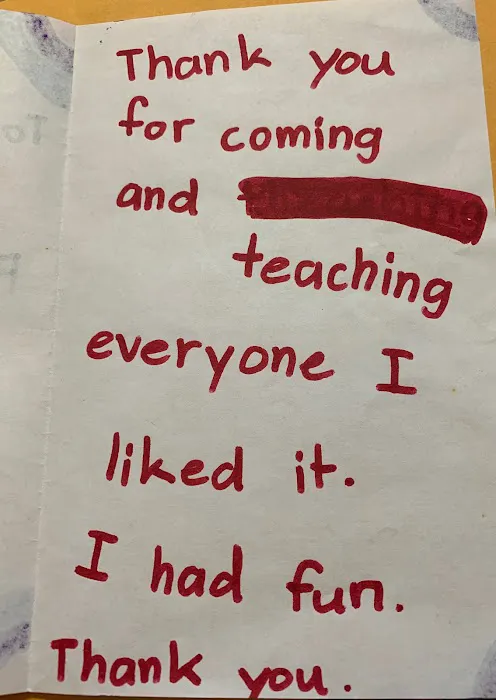 Thank you
for coming
and
teaching
everyone I
liked it.
I had fun.
Thank you.